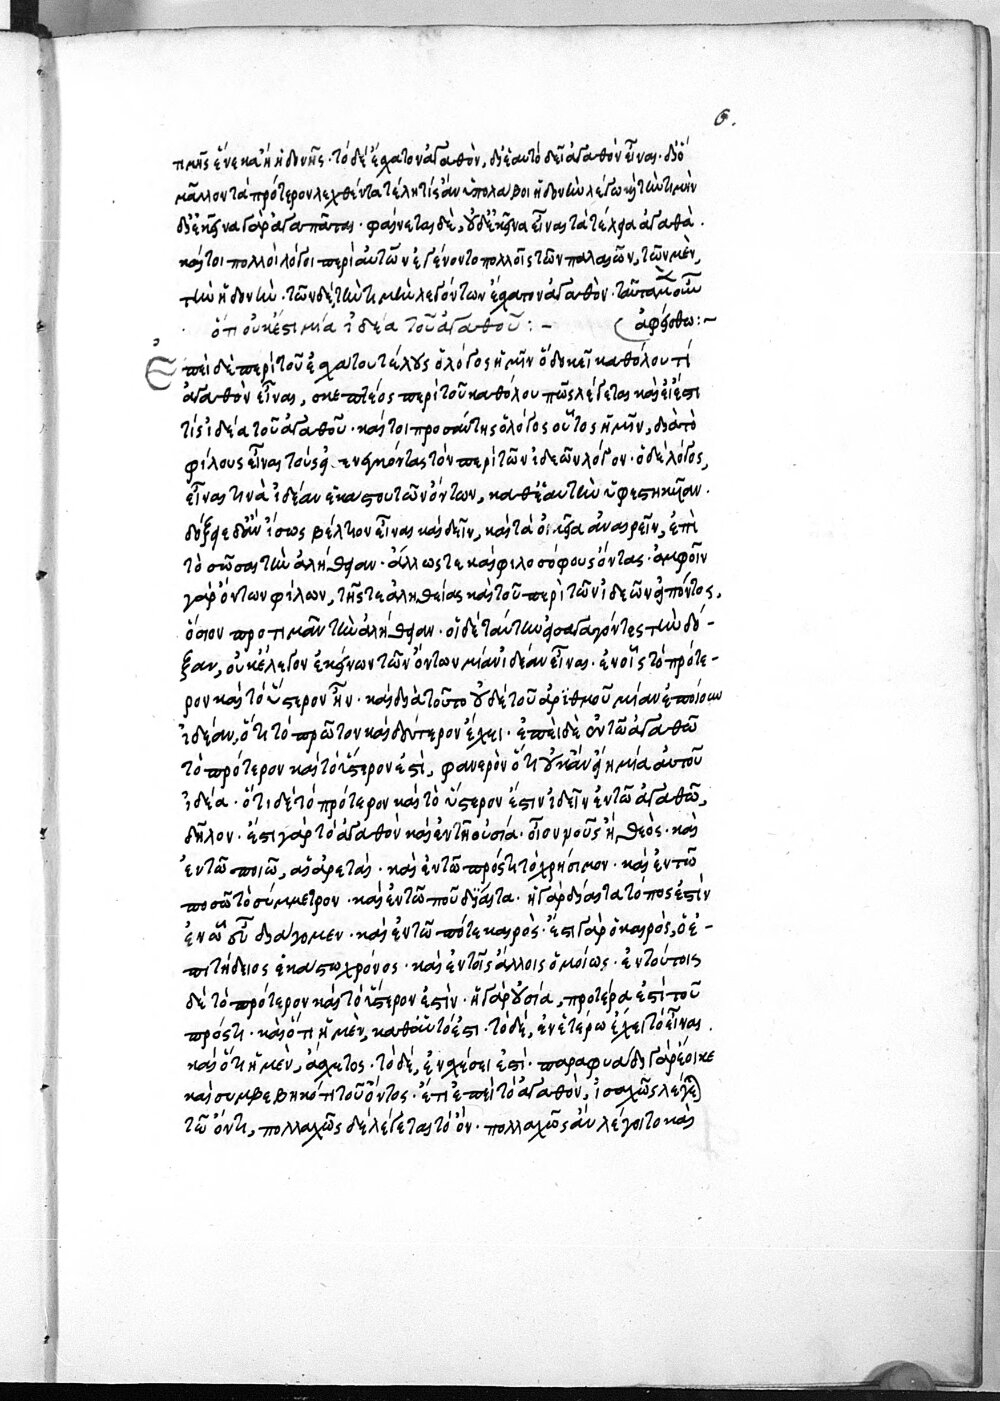 6.
τιμῆς ἕνεκα ἢ ἡδονῆς· τὸ δὲ ἔσχατον ἀγαθὸν, δι' ἑαυτὸ δεῖ ἀγαθὸν εἶναι· διὸ
μᾶλλον τὰ πρότερον λεχθέντα τέλη τὶς ἂν ὑπολάβοι ἡδονὴν λέγω καὶ τὴν τιμήν
δι' ἐκεῖνα γὰρ ἀγαπᾶται· φαίνεται δὲ, οὐδὲ ἐκεῖνα εἶναι τὰ τέλεια ἀγαθὰ.
καίτοι πολλοὶ λόγοι περὶ αὐτῶν ἐγένοντο πολλοῖς τῶν παλαιῶν, τῶν μὲν,
τὴν ἡδονὴν· τῶν δὲ, τὴν τιμὴν λεγόντων ἔσχατον ἀγαθὸν· ταῦτα μὲν οὖν
ἀφείσθω:~
ὅτι οὐκ ἔστι μία ἰδέα τοῦ ἀγαθοῦ:~
Ἐπεὶ δὲ περὶ τοῦ ἐσχάτου τέλους ὁ λόγος ἡμῖν ὃ δοκεῖ καθόλου τί
ἀγαθὸν εἶναι, σκεπτέος περὶ τοῦ καθόλου πῶς λέγεται καὶ εἰ ἔστι
τίς ἰδέα τοῦ ἀγαθοῦ· καίτοι προσάντης ὁ λόγος οὗτος ἡμῖν, διὰ τὸ
φίλους εἶναι τοὺς εἰσενεγκόντας τὸν περὶ τῶν ἰδεῶν λόγον· ὁ δὲ λόγος,
εἶναι τινὰ ἰδέαν ἑκάστου τῶν ὄντων, καθ' ἑαυτὴν ὑφεστηκυῖαν.
δόξειε δ' ἂν ἴσως βέλτιον εἶναι καὶ δεῖν, καὶ τὰ οἰκεῖα ἀναιρεῖν, ἐπὶ
τὸ σῶσαι τὴν ἀλήθειαν· ἄλλως τε καὶ φιλοσόφους ὄντας· ἀμφοῖν
γὰρ ὄντων φίλων, τῆς τε ἀληθείας καὶ τοῦ περὶ τῶν ἰδεῶν εἰπόντος,
ὅσιον προτιμᾶν τὴν ἀλήθειαν· οἱ δὲ ταύτην εἰσαγαγόντες τὴν δό-
ξαν, οὐκ ἔλεγον ἐκείνων τῶν ὄντων μίαν ἰδέαν εἶναι· ἐν οἷς τὸ πρότε-
ρον καὶ τὸ ὕστερον ἦν· καὶ διὰ τοῦτο οὐδὲ τοῦ ἀριθμοῦ μίαν ἐποίουν
ἰδέαν, ὅτι τὸ πρῶτον καὶ δεύτερον ἔχει· ἐπεὶ δὲ ἐν τῶ ἀγαθῶ
τὸ πρότερον καὶ τὸ ὕστερον ἐστὶ, φανερὸν ὅτι οὐκ ἂν εἴη μία αὐτοῦ
ἰδέα· ὅτι δὲ τὸ πρότερον καὶ τὸ ὕστερον ἔστιν ἰδεῖν ἐν τῶ ἀγαθῶ,
δῆλον· ἔστι γὰρ τὸ ἀγαθὸν καὶ ἐν τῆ οὐσία· οἷον νοῦς ἢ θεὸς· καὶ
ἐν τῶ ποιῶ, αἱ ἀρεταί· καὶ ἐν τῶ πρός τι τὸ χρήσιμον· καὶ ἐν τῶ
ποσῶ τὸ σύμμετρον· καὶ ἐν τῶ ποῦ δίαιτα· ἡ γὰρ δίαιτα τόπος ἐστὶν
ἐν ὧ εὖ διάγομεν· καὶ ἐν τῶ πότε καιρὸς· ἔστι γὰρ ὁ καιρὸς, ὁ ἐ-
πιτήδειος ἑκάστω χρόνος· καὶ ἐν τοῖς ἄλλοις ὁμοίως· ἐν τούτοις
δὲ τὸ πρότερον καὶ τὸ ὕστερον ἐστὶν· ἡ γὰρ οὐσία, προτέρα ἐστὶ τοῦ
πρός τι· καὶ ὅτι ἡ μὲν, καθ' αὑτό ἐστι· τὸ δὲ, ἐν ἑτέρω ἔχει τὸ εἶναι.
καὶ ὅτι ἡ μὲν, ἄσχετος· τὸ δὲ, ἐν σχέσει ἐστὶ· παραφυάδι γὰρ ἔοικε
καὶ συμβεβηκότι τοῦ ὄντος· ἔτι ἐπεὶ τὸ ἀγαθὸν, ἰσαχῶς λέγεται
τῶ ὄντι, πολλαχῶς δὲ λέγεται τὸ ὂν· πολλαχῶς ἂν λέγοιτο καὶ